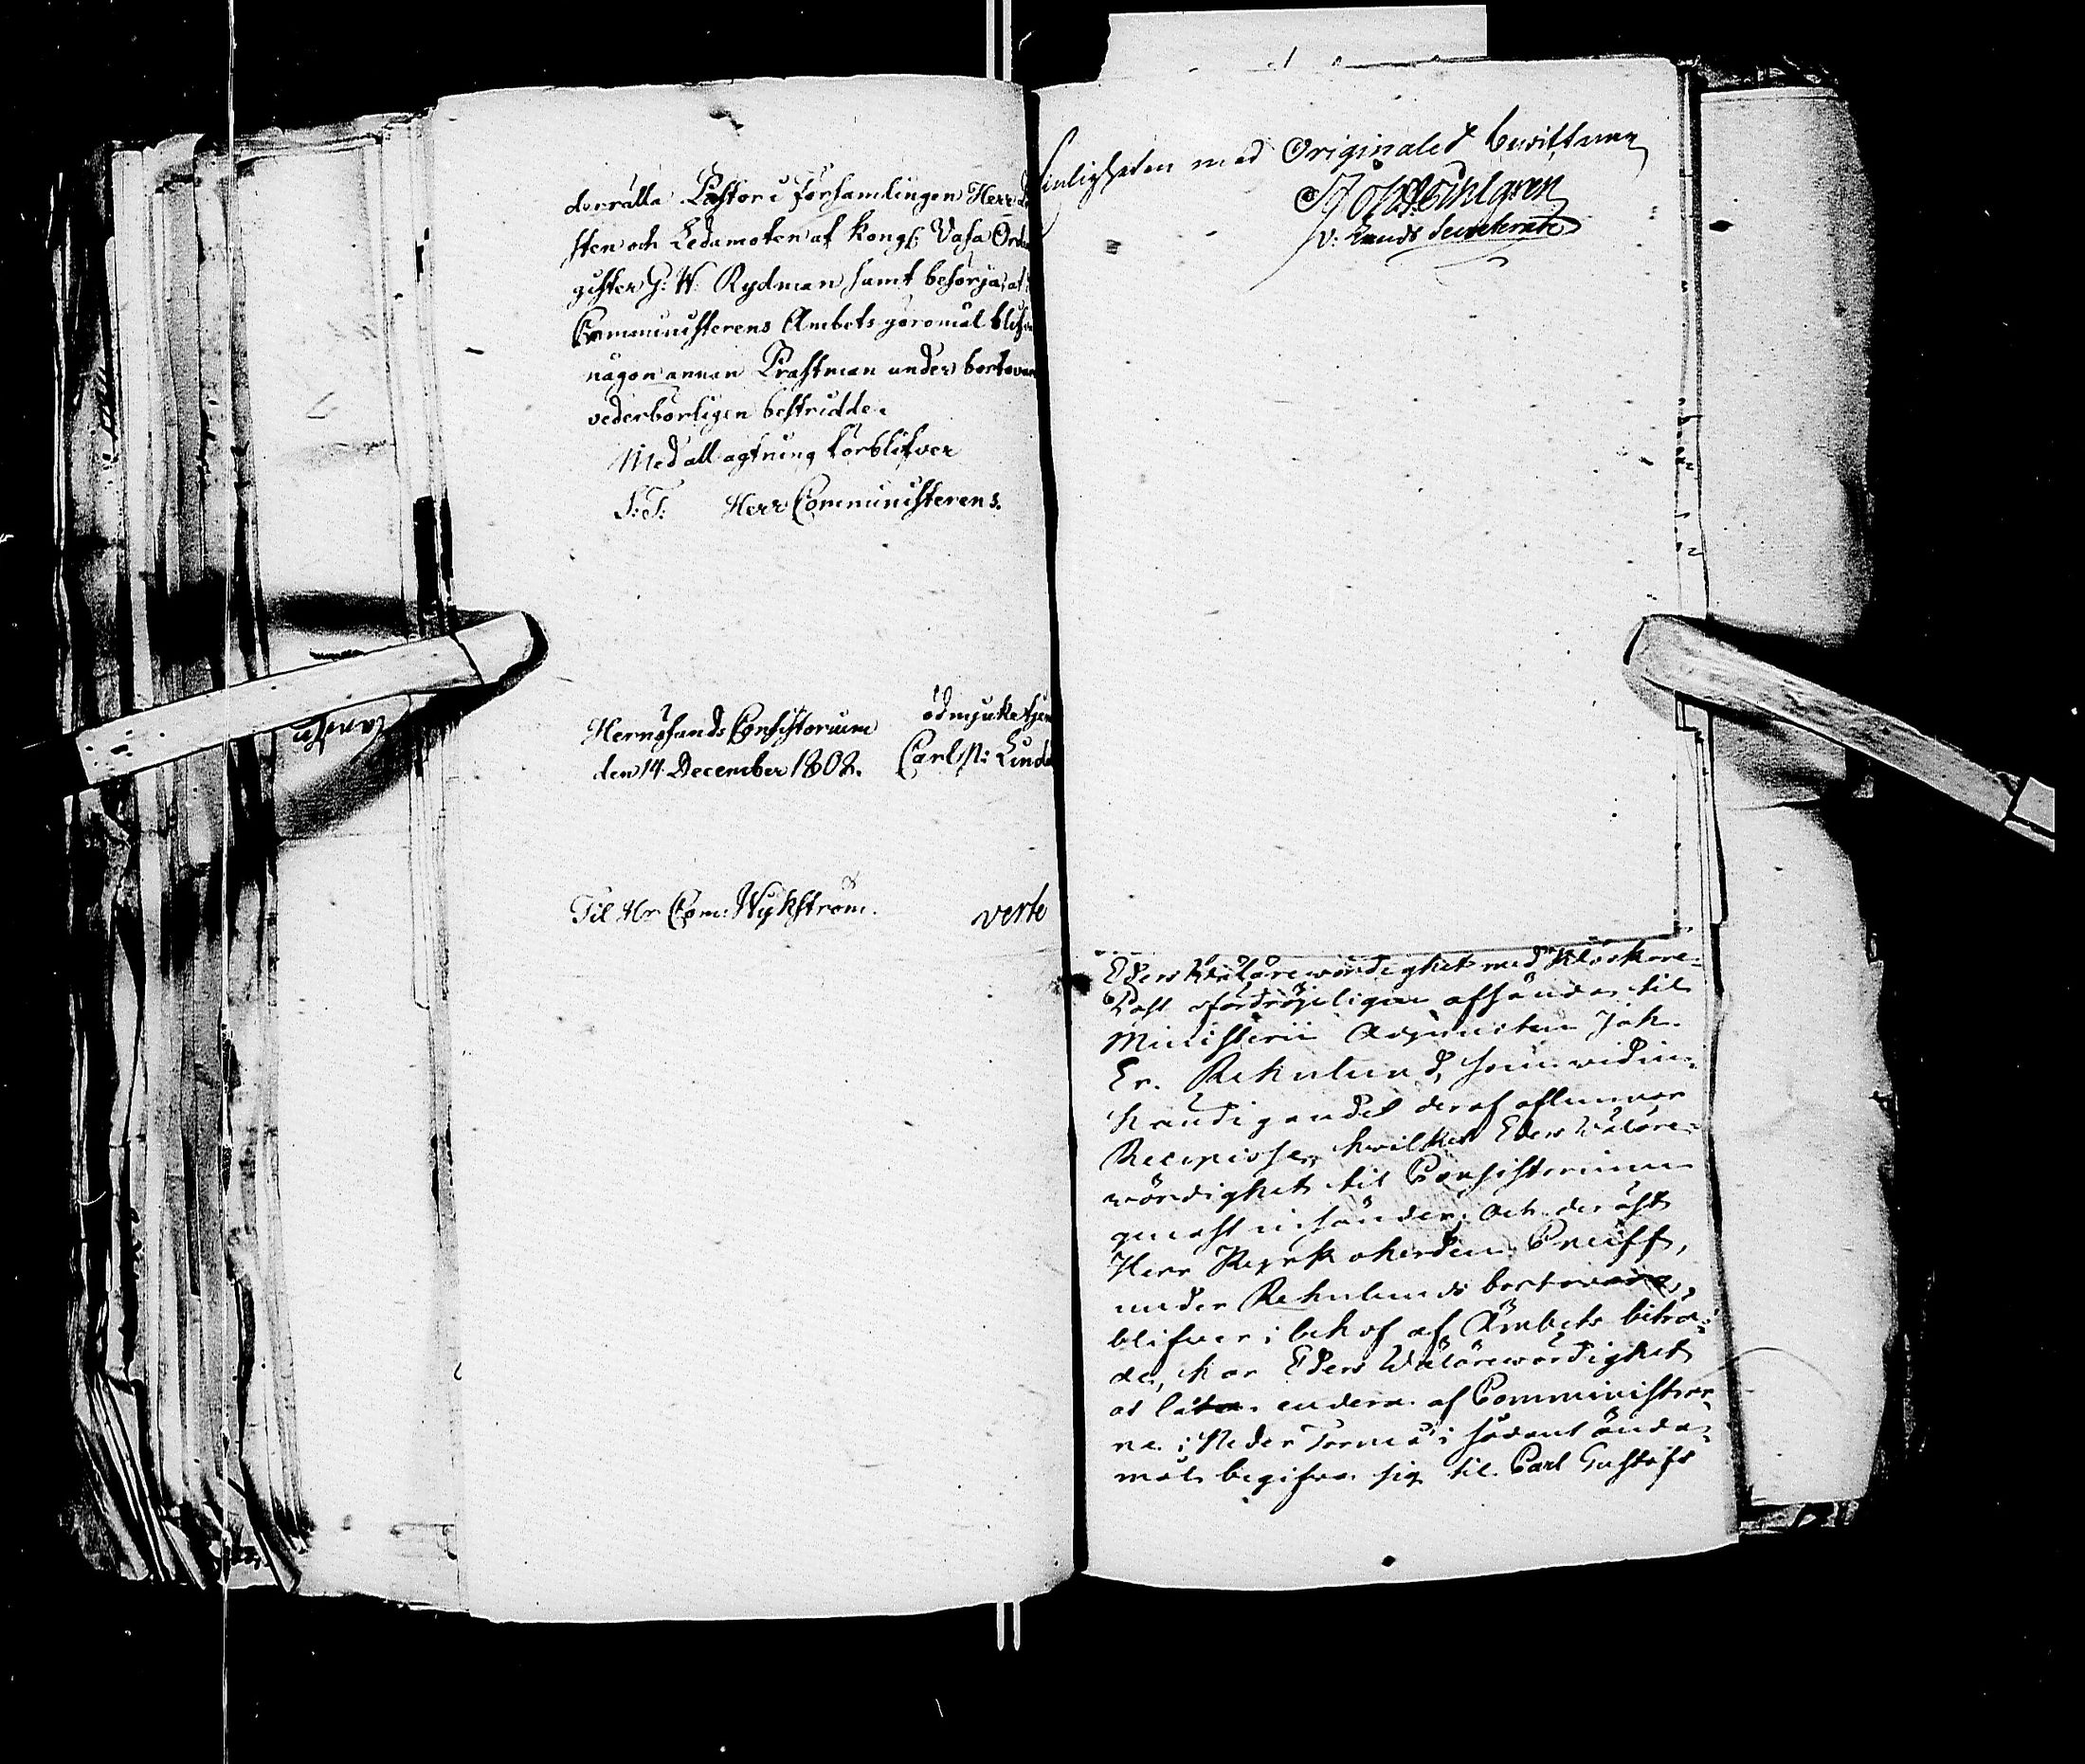 derrätta Pastor i Församlingen Herr
sten och Ledamoten af Kongl: Vasa Ord
gister G: W: Rydman, samt besörja, at
Comministerens Ämbets göromål blifva
någon annan Prästman under bortovar
vederbörligen bestridde.
Med all agtning förblifver
S:T: Herr Comministerens.
ödmjuke tjen
Hernösands Consistorium
den 14 December 1808. Carl N: Lind
Til Hr Com: Wykström.
verte
enligheten med Originalet bewittnar
v: Lands Secreterare
Eders Wälärewördighet med Klockare-
Post ofördröjeligen afsända til
Ministerii Adjuncten Joh.
Er. Rehnlund, som widin-
händigandet deraf aflemnar
Recipisse, hwilket Eders Wäläre-
wördighet til Consistorium
genast insänder; Och derest
Herr Kyrkoherden Pneiff,
under Rehnlunds bortovaro,
blifver i behof af Ämbets biträ-
de, har Eders Wälärewördighet
at låta endera af Comministrar-
ne i Neder Torneå i sådant ända-
mål begifva sig til Carl Gustafs